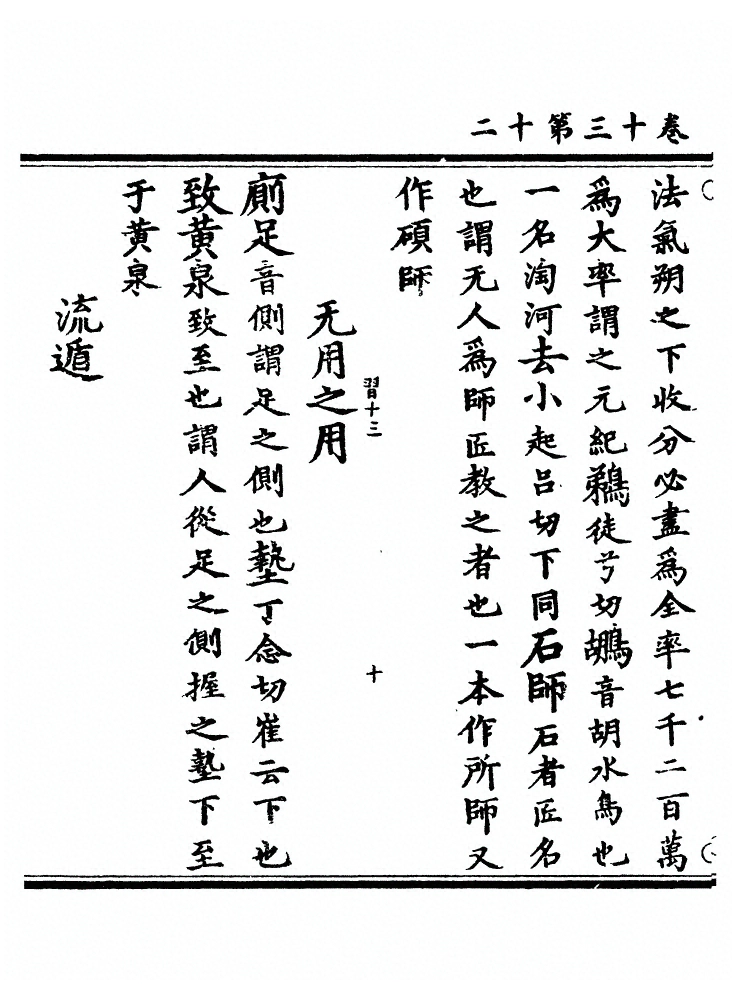 卷十三第十二
法氣朔之下收分必盡爲全率七千二百萬
爲大率謂之元紀鵜徒兮切鶘音胡水鳥也
一名淘河去小起呂切下同石師石者匠名
也謂无人爲師匠教之者也一本作所師又
作碩師
習十三
十
无用之用
廁足音側謂足之側也墊丁念切崔云下也
致黄泉致至也謂人從足之側掘之墊下至
于黄泉
流遁